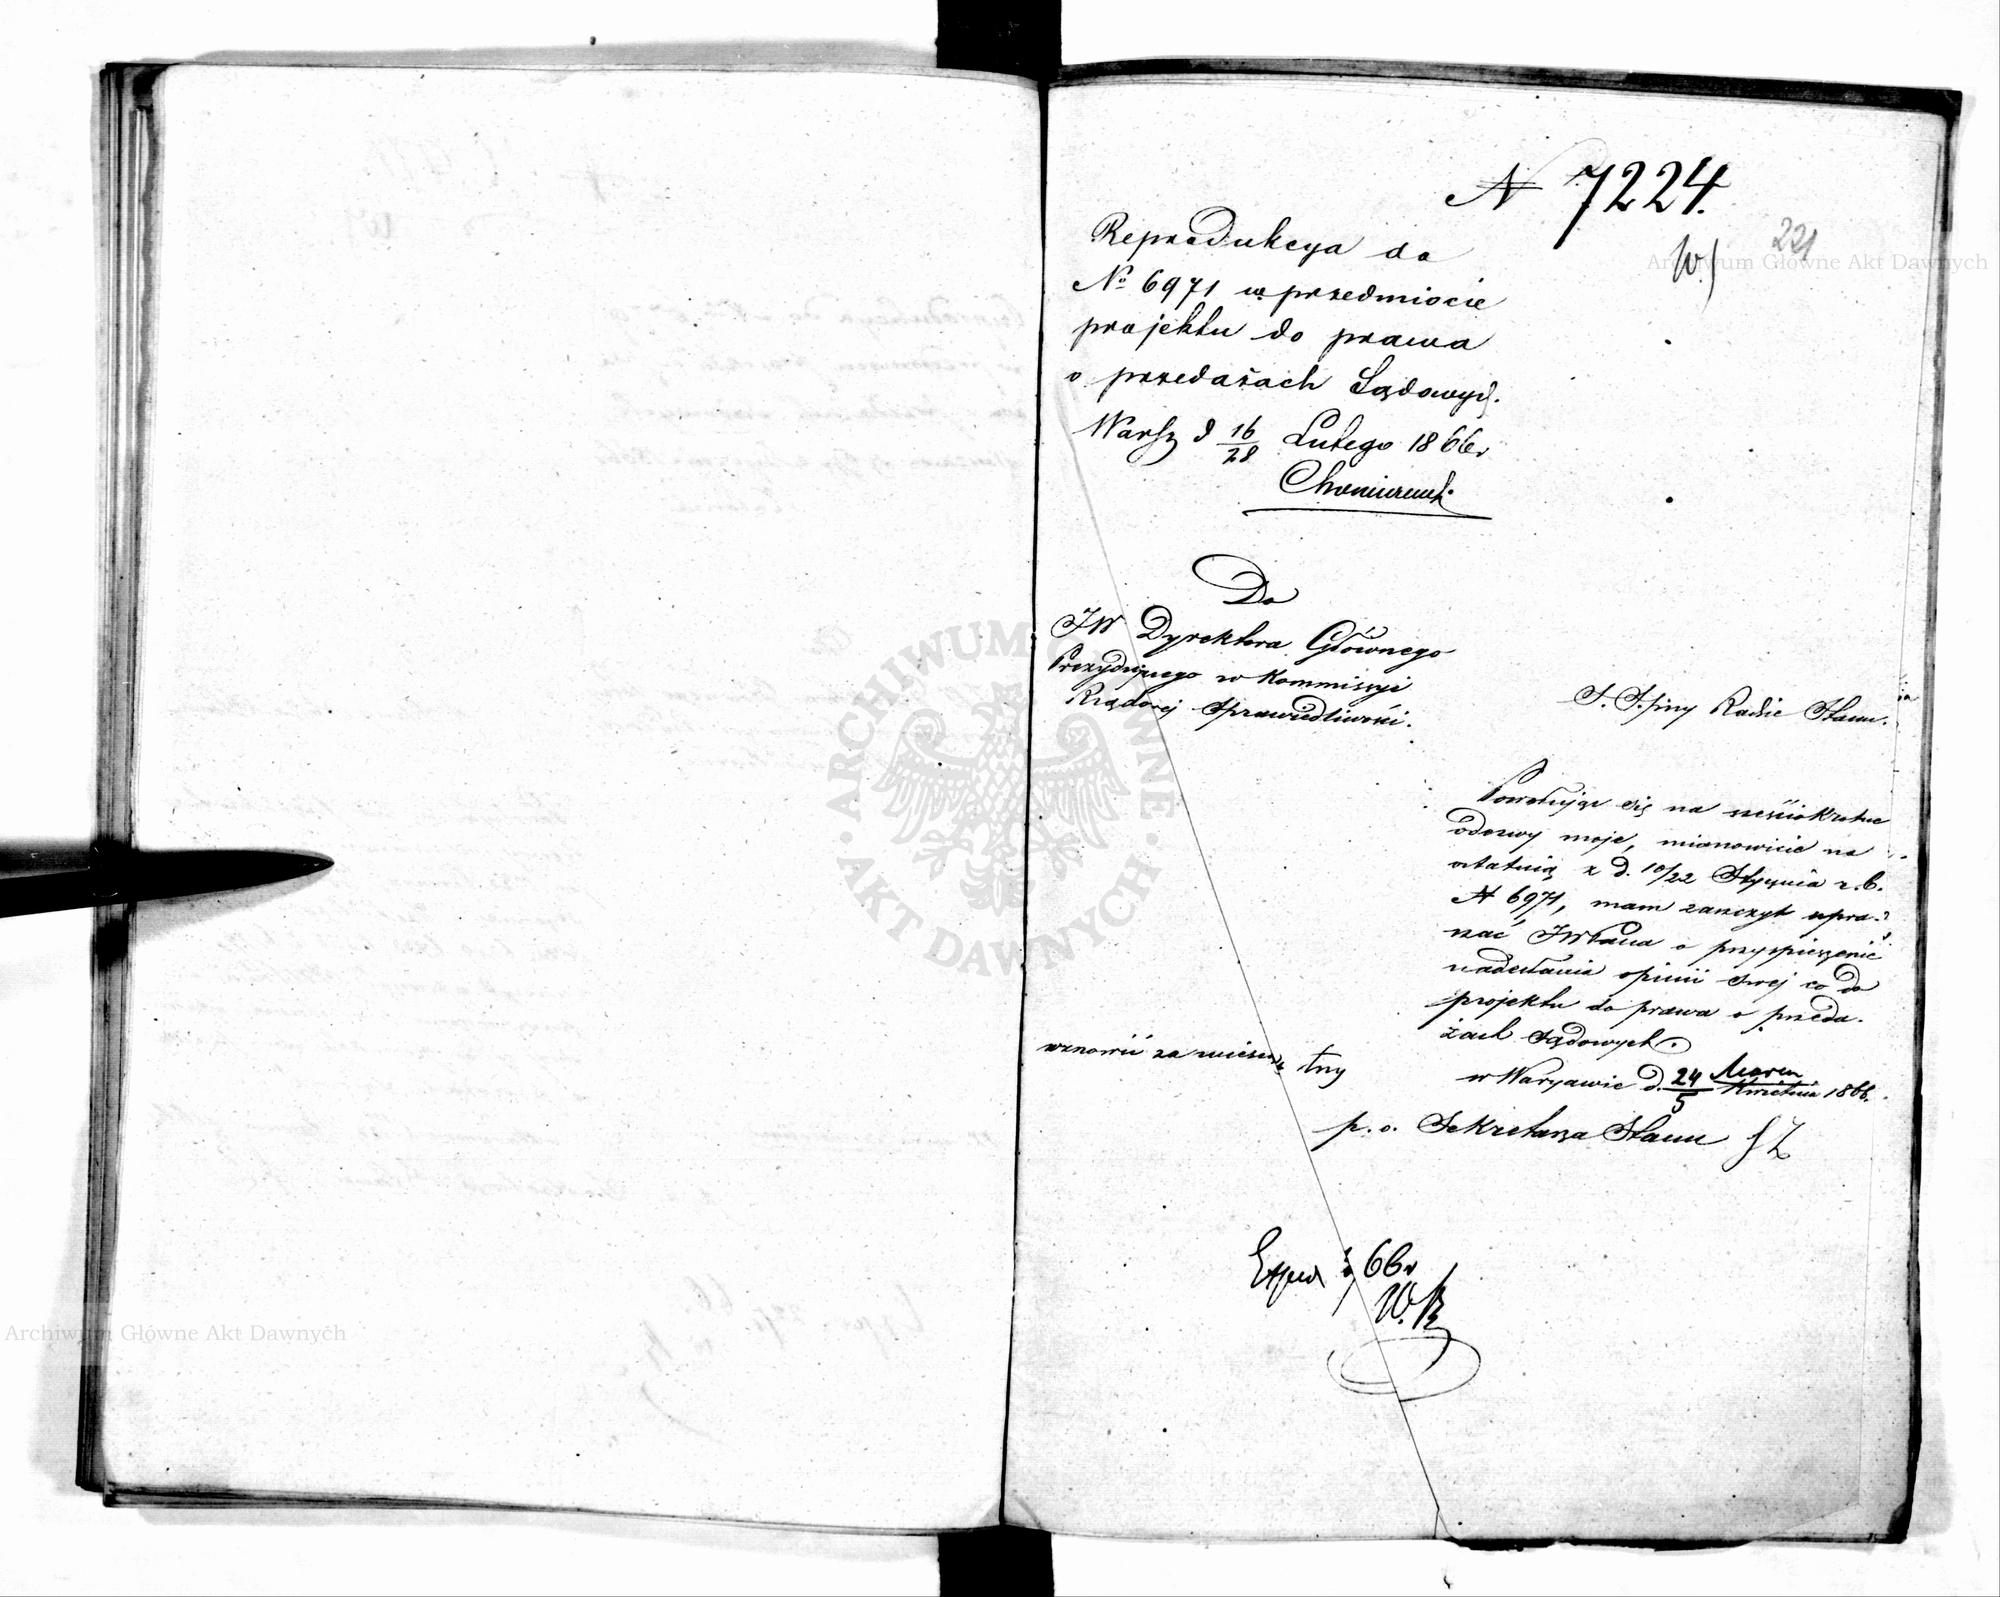 N 7224.
221
W.)
Reprodukcya do
No 6971 w przedmiocie
projektu do prawa
o przedażach Sądowych.
Warsz d 16/28 Lutego 1866 r
Do
JW Dyrektora Głównego
Prezydującego w Kommissyi
Rządowej Sprawiedliwości.
Radzie Stanu.
Powołując się na sześciokrotne
odezwy moje, mianowicie na
ostatnią z d. 10/22 Stycznia r. b.
N 6971, mam zaszczyt upra-
szać JWPana o przyspieszenie
nadesłania opinii swej co do
projektu do prawa o przeda-
żach Sądowych.
wznowić za miesiąc
trzy
w Warszawie d. 24/5 Marca/Kwietnia 1866.
p. o. Sekretarza Stanu
66 r
Archiwum Główne Akt Dawnych
ARCHIWUM GŁÓWNE · AKT DAWNYCH ·
Archiwum Główne Akt Dawnych